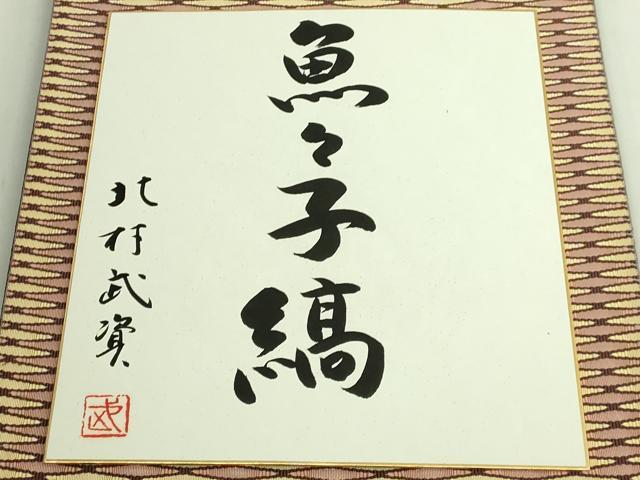 魚々子縞
北村武資
武